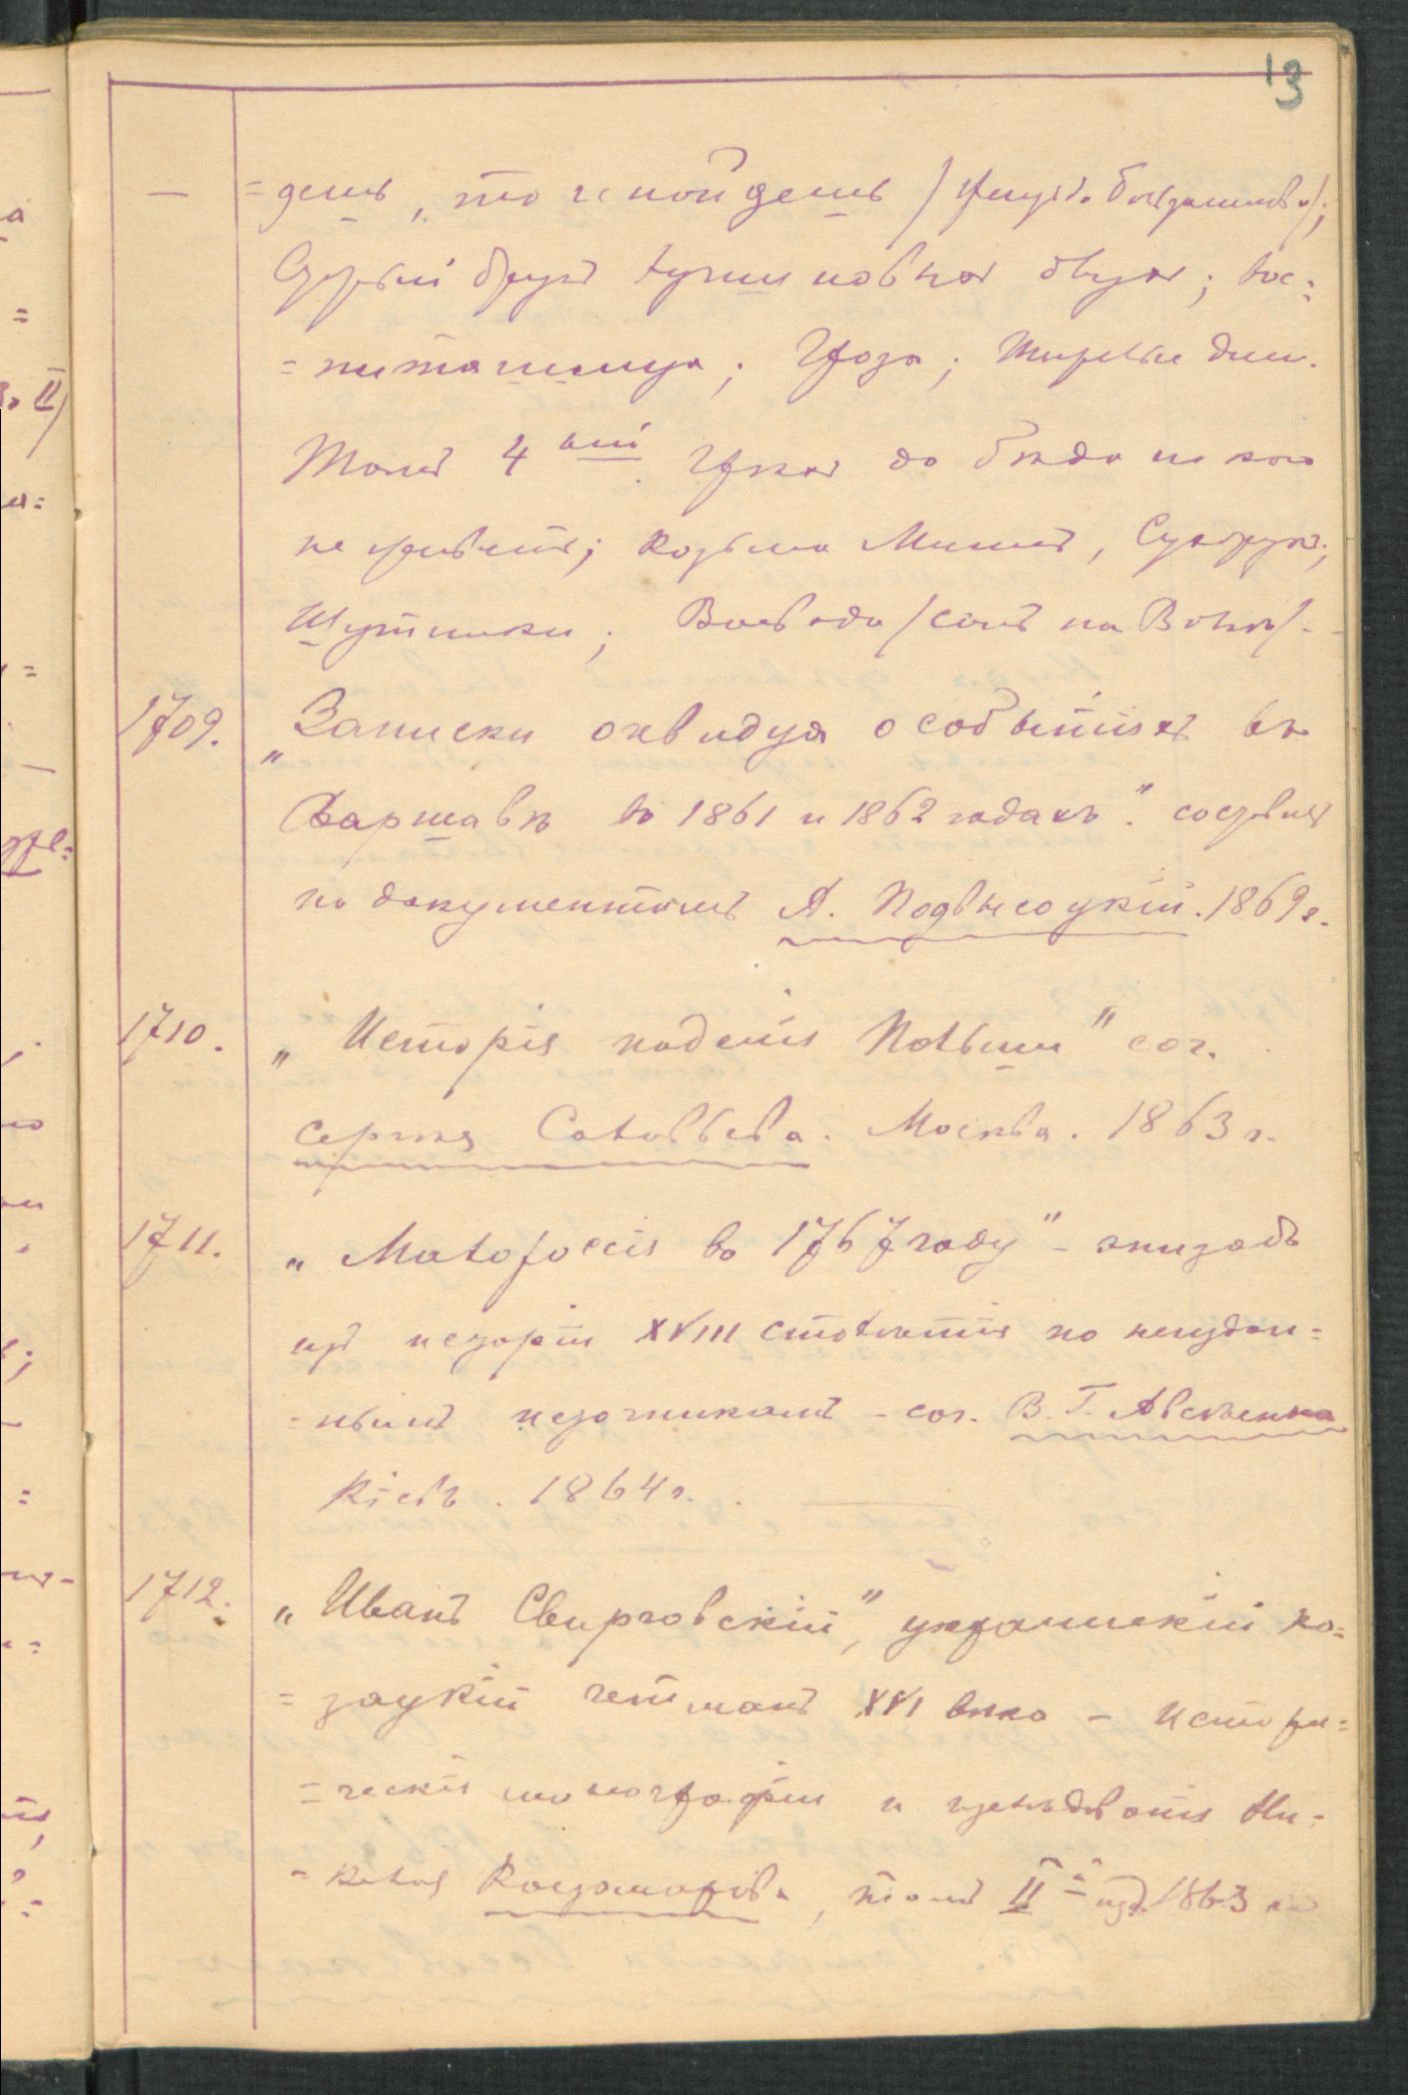 13
— =дешь, то и найдешь /женит. Бальзаминова/;
Старый другъ лучше новыхъ двухъ; вос=
=питанница; Гроза; Тяжелые дни.
Томъ 4ый. Грѣхъ да бѣда на кого
не живетъ; Козьма Мининъ, Сухорукъ;
Шутники; Воевода /сонъ на Волгѣ/.-
1709. „Записки очевидца о событіяхъ въ
Варшавѣ въ 1861 и 1862 годахъ". составилъ
по документамъ А. Подвысоцкій. 1869 г.
1710. „Исторія паденія Польши" соч.
Сергѣя Соловьева. Москва. 1863 г.
1711. „Малороссія въ 1767 году" - эпизодъ
изъ исторіи XVIII столѣтія по неиздан=
=нымъ источникамъ - соч. В. Г. Авсѣенка
Кіевъ. 1864 г.
1712. „Иванъ Свирговскій", украинскій ко=
=зацкій гетманъ XVI вѣка - Истори=
=ческія монографіи и изслѣдованія Ни=
=колая Костомарова, томъ II й изд. 1863 г.